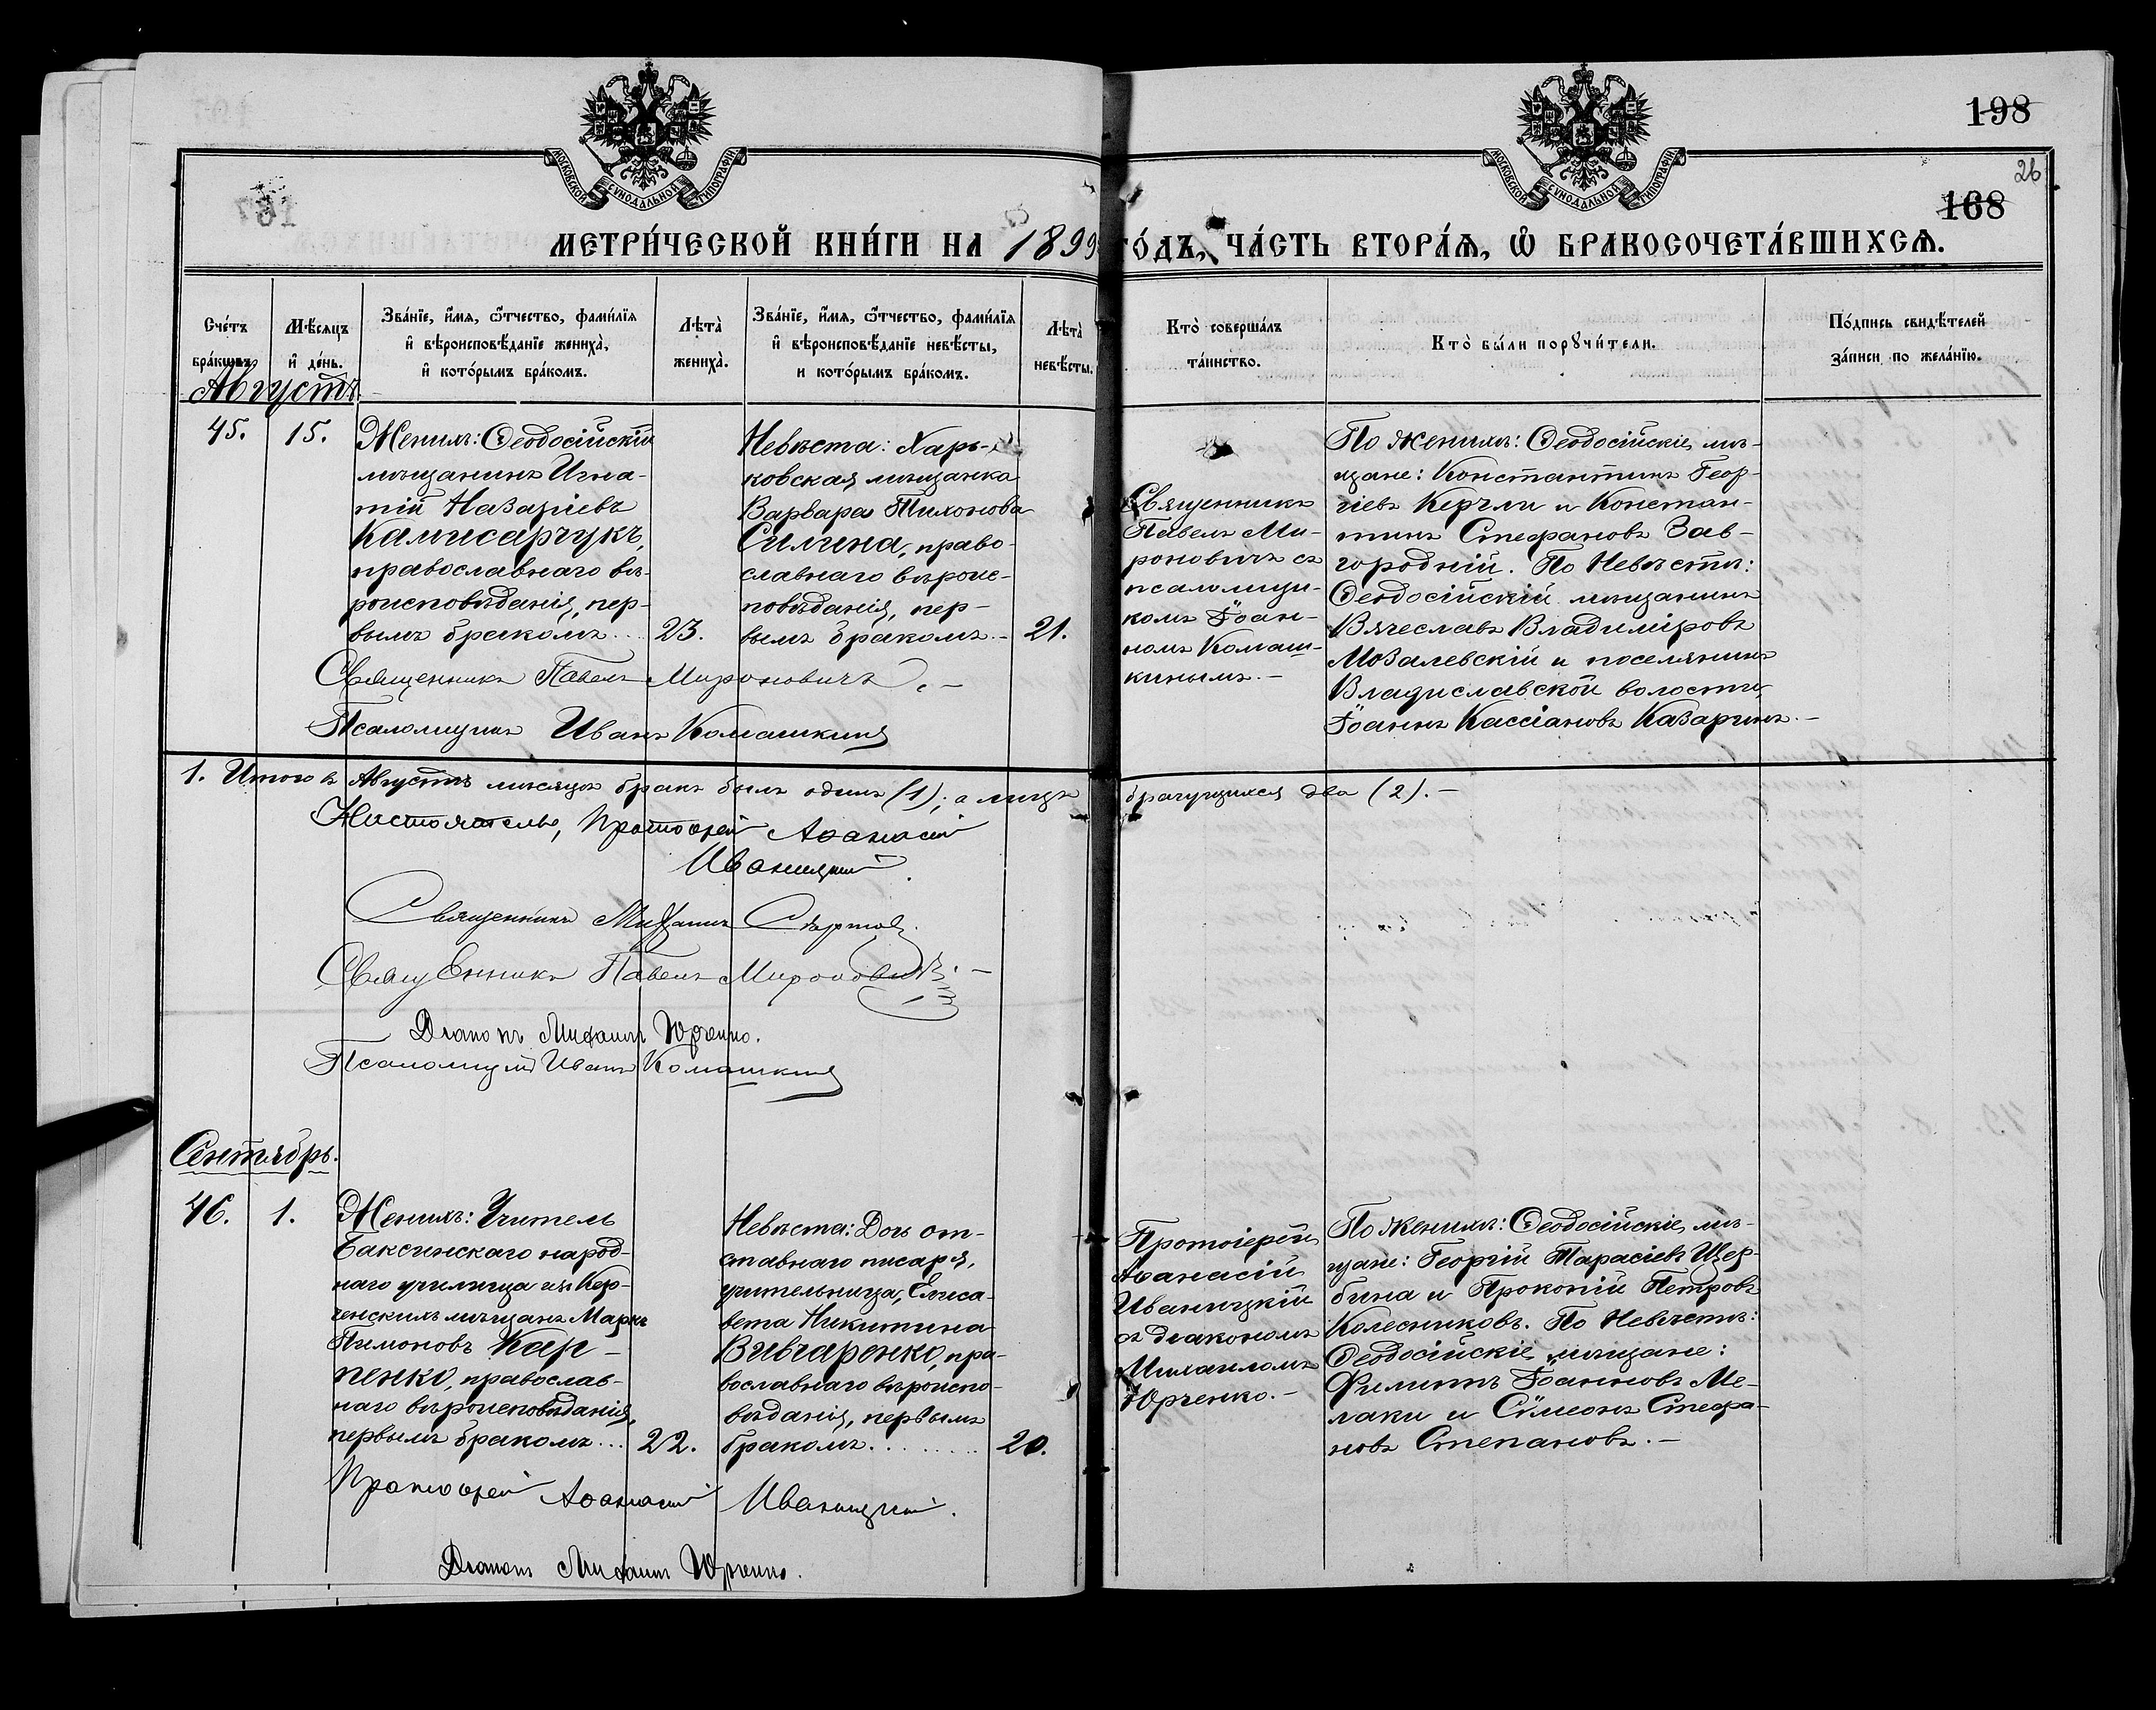 МОСКОВСКОЙ СѴНОДАЛЬНОЙ ТИПОГРАФІИ
МОСКОВСКОЙ СѴНОДАЛЬНОЙ ТИПОГРАФІИ
198
26
168
МЕТРИ́ЧЕСКОЙ КНИ́ГИ НА 1899 ГО́ДЪ, ЧА́СТЬ ВТОРА́Ѧ, Ѽ БРАКОСОЧЕТА́ВШИХСѦ.
Сче́тъ
бра́кωвъ
Мѣ́сяцъ
и҆ де́нь.
Зва́нїе, и҆́мѧ, ѻ҆́тчество, фами́лїѧ
и҆ вѣроисповѣ́данїе жениха̀,
и҆ кото́рымъ бра́комъ.
Лѣта̀
жениха̀.
Зва́нїе, и҆́мѧ, ѻ҆́тчество, фами́лїѧ
и҆ вѣроисповѣ́данїе невѣ́сты,
и кото́рымъ бра́комъ.
Лѣта̀
невѣ́сты.
Кто̀ соверша́лъ
та́инство.
Кто̀ бы́ли порꙋчи́тели.
По́дпись свидѣ́телей
за́писи по жела́нїю.
Августъ.
45.
15.
Женихъ: Ѳеодосійскій
мѣщанинъ Игна-
тій Назаріевъ
Камисарчукъ,
православнаго вѣ-
роисповѣданія, пер-
вымъ бракомъ...
23.
Невѣста: Харь-
ковская мѣщанка
Варвара Тихонова
Силина, право-
славнаго вѣроис-
повѣданія, пер-
вымъ бракомъ.-
21.
Священникъ
Павелъ Ми-
роновичъ съ
псаломщи-
комъ Іоан-
номъ Комаш-
кинымъ.-
По женихѣ: Ѳеодосійскіе мѣ-
щане: Константинъ Геор-
гіевъ Керчли и Констан-
тинъ Стефановъ Зав-
городній. По Невѣстѣ:
Ѳеодосійскій мѣщанинъ
Вячеславъ Владиміровъ
Мозалевскій и поселянинъ
Владиславской волости
Іоаннъ Кассіановъ Казаринъ.-
Священникъ Павелъ Мироновичъ.-
Псаломщикъ Иванъ Комашкинъ
1. Итого въ Августѣ мѣсяцѣ бракъ былъ одинъ (1); а лицъ брачущихся два (2).-
Настоятель, Протоіерей Аѳанасій
Иваницкій.
Священникъ Михаилъ
Священникъ Павелъ Мироновичъ.-
Діаконъ Михаилъ Юрченко.
Псаломщикъ Иванъ Комашкинъ
Сентябрь.
46.
1.
Женихъ: Учитель
Баксинскаго народ-
наго училища изъ Кер-
ченскихъ мѣщанъ Маркъ
Пимоновъ Кар-
пенко, православ-
наго вѣроисповѣданія,
первымъ бракомъ...
22.
Невѣста: Дочь от-
ставнаго писаря,
учительница, Елиса-
вета Никитина
Вивчаренко, пра-
вославнаго вѣроиспо-
вѣданія, первымъ
бракомъ.........
20.
Протоіерей
Аѳанасій
Иваницкій
съ діакономъ
Михаиломъ
Юрченко.-
По женихѣ: Ѳеодосійскіе мѣ-
щане: Георгій Тарасіевъ Щер-
бина и Прокопій Петровъ
Колесниковъ. По Невѣстѣ:
Ѳеодосійскіе мѣщане:
Филиппъ Іоанновъ Ме-
лаки и Сѵмеонъ Стефа-
новъ Степановъ.-
Протоіерей Аѳанасій Иваницкій.
Діаконъ Михаилъ Юрченко.